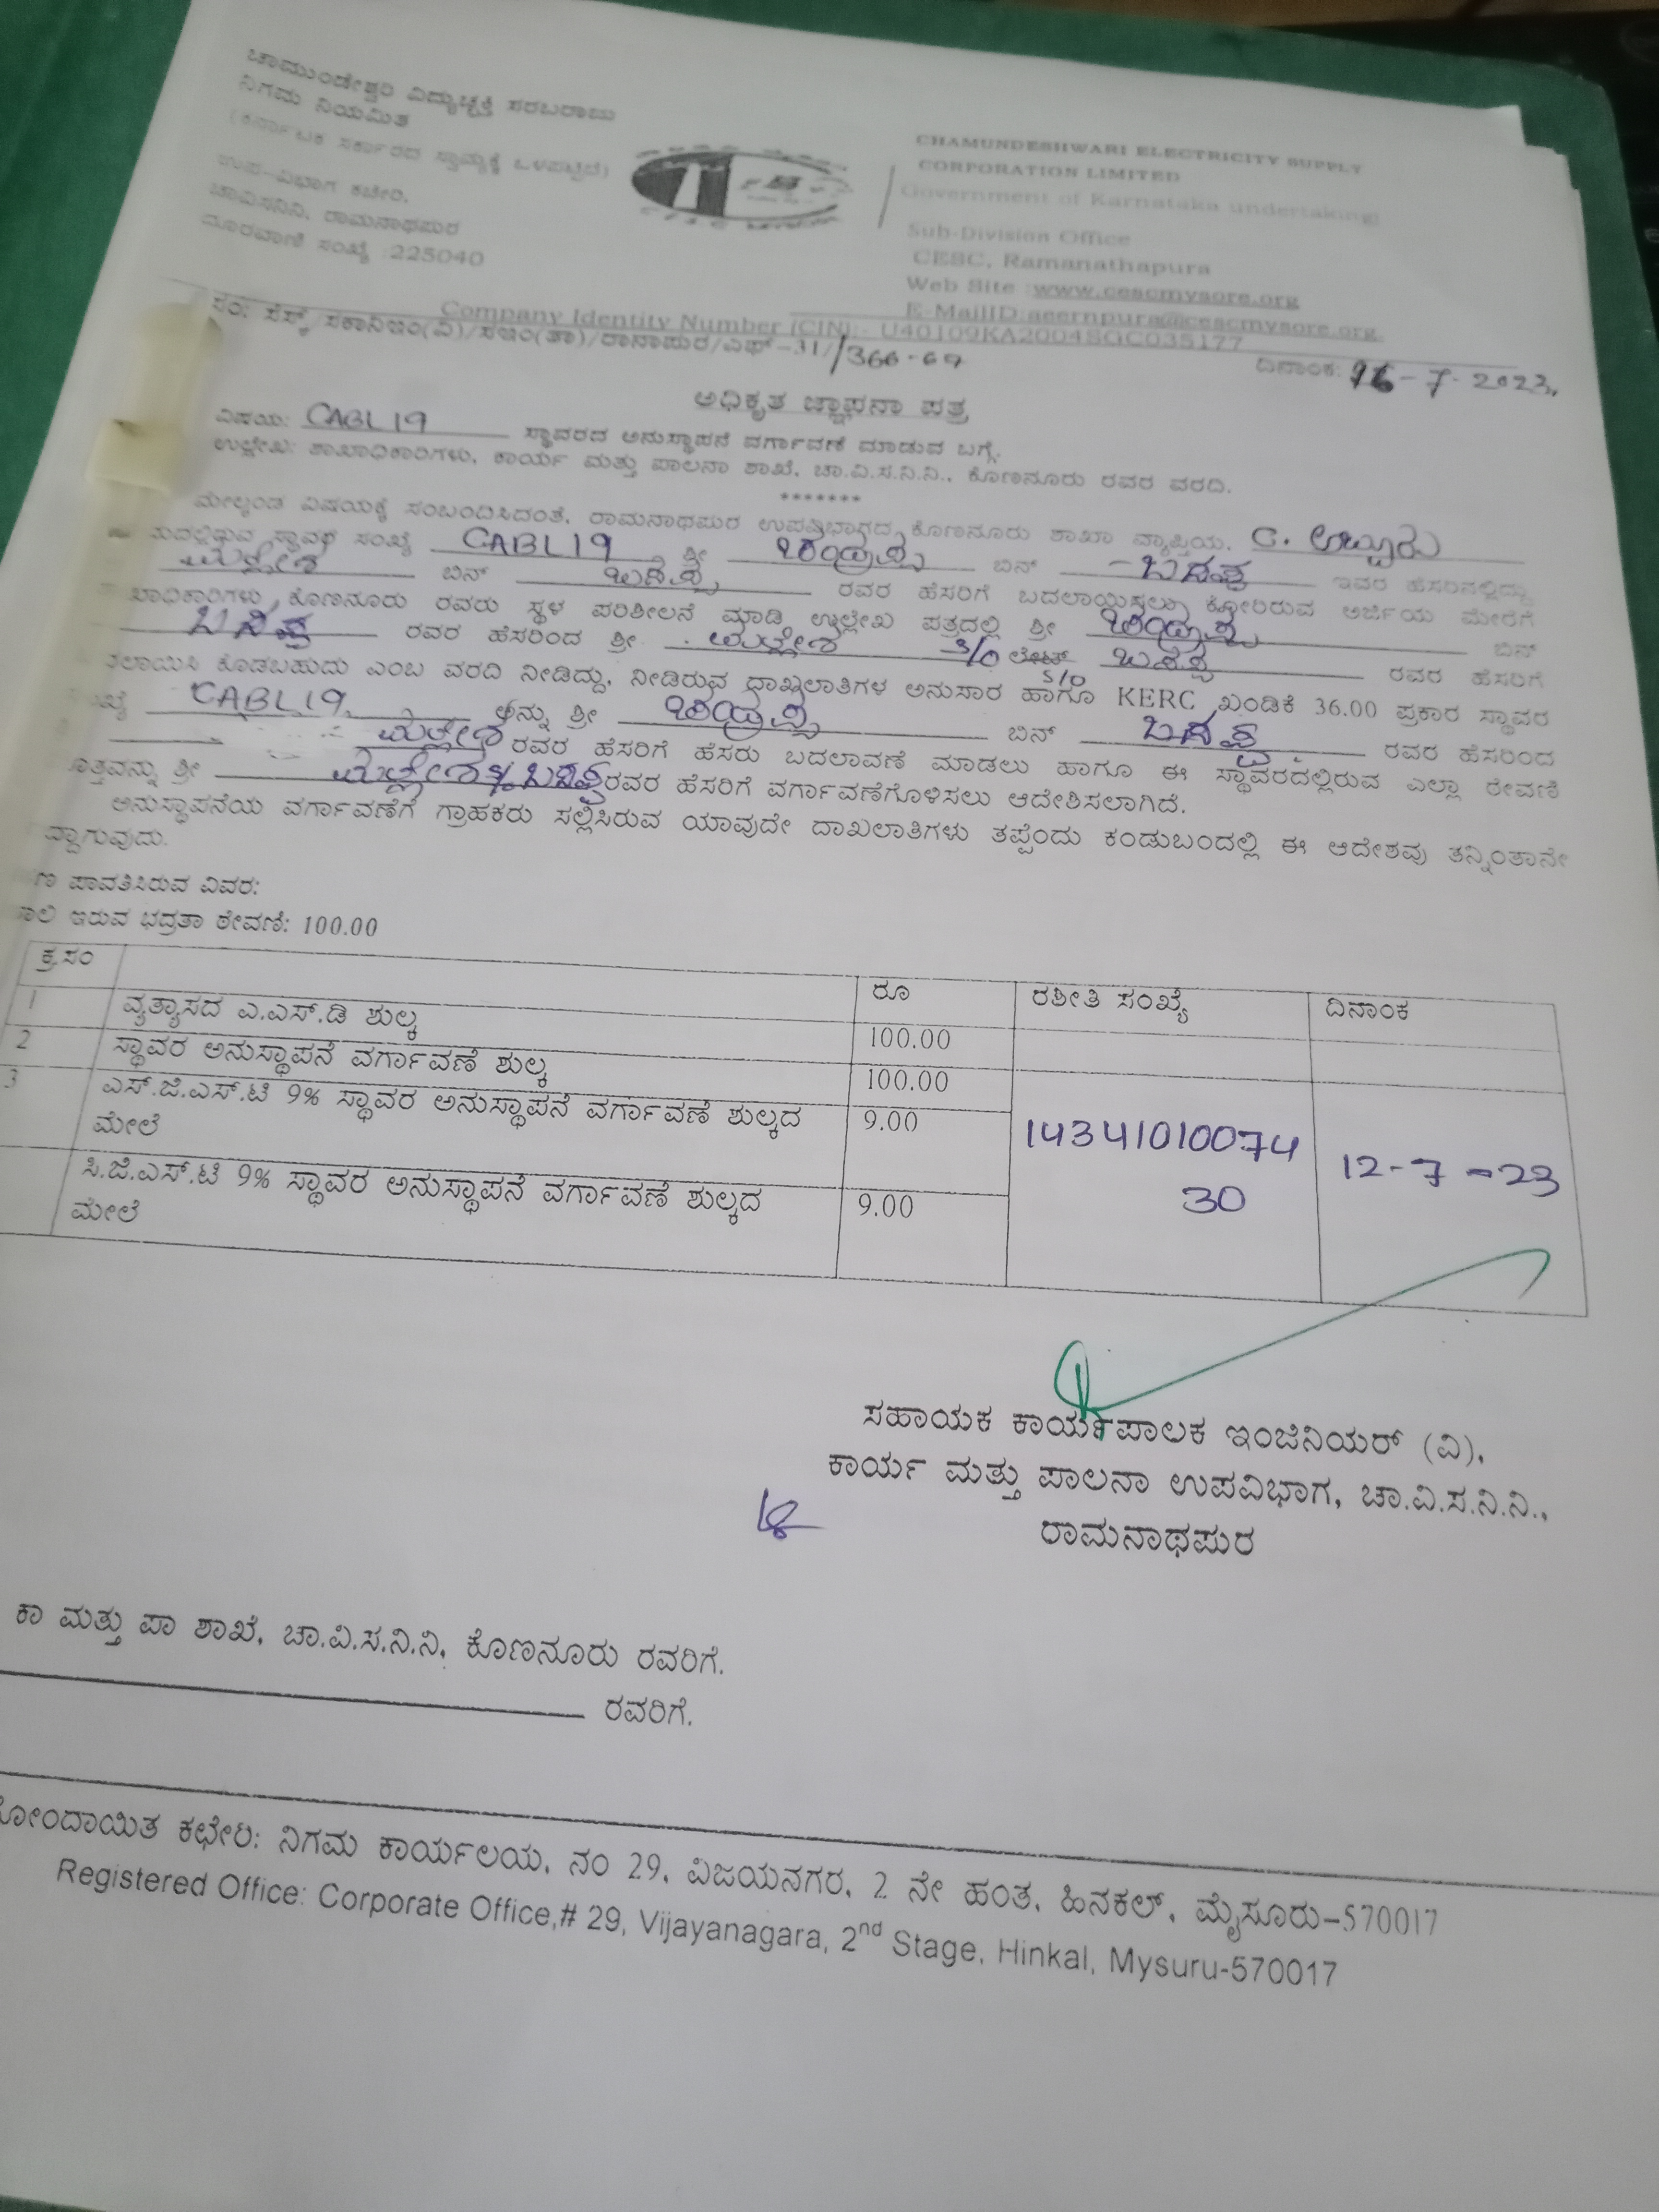 ಚಾಮುಂಡೇಶ್ವರಿ ವಿದ್ಯುಚ್ಛಕ್ತಿ ಸರಬರಾಜು
ನಿಗಮ ನಿಯಮಿತ
(ಕರ್ನಾಟಕ ಸರ್ಕಾರದ ಸ್ವಾಮ್ಯಕ್ಕೆ ಒಳಪಟ್ಟಿದೆ)
ಉಪ-ವಿಭಾಗ ಕಚೇರಿ,
ಚಾವಿಸನಿನಿ, ರಾಮನಾಥಪುರ
ದೂರವಾಣಿ ಸಂಖ್ಯೆ :225040
CHAMUNDESHWARI ELECTRICITY SUPPLY
CORPORATION LIMITED
Government of Karnataka undertaking
Sub-Division Office
CESC, Ramanathapura
Web Site :www.cescmysore.org
E-MailID:aeernpura@cescmysore.org
Company Identity Number (CIN):- U40109KA2004SGC035177
ಸಂ: ಸೆಸ್ಕ್/ಸಕಾನಿಇಂ(ವಿ)/ಸಇಂ(ತಾ)/ರಾನಾಪುರ/ಎಫ್-31/1366-69
ದಿನಾಂಕ: -7-2023.
ಅಧಿಕೃತ ಜ್ಞಾಪನಾ ಪತ್ರ
ವಿಷಯ: CABL19 ಸ್ಥಾವರದ ಅನುಸ್ಥಾಪನೆ ವರ್ಗಾವಣೆ ಮಾಡುವ ಬಗ್ಗೆ.
ಉಲ್ಲೇಖ: ಶಾಖಾಧಿಕಾರಿಗಳು, ಕಾರ್ಯ ಮತ್ತು ಪಾಲನಾ ಶಾಖೆ, ಚಾ.ವಿ.ಸ.ನಿ.ನಿ., ಕೊಣನೂರು ರವರ ವರದಿ.
*******
ಮೇಲ್ಕಂಡ ವಿಷಯಕ್ಕೆ ಸಂಬಂದಿಸಿದಂತೆ, ರಾಮನಾಥಪುರ ಉಪವಿಭಾಗದ ಕೊಣನೂರು ಶಾಖಾ ವ್ಯಾಪ್ತಿಯ, C. ಅಬ್ಬೂರು
ಸ್ಥಾವರ ಸಂಖ್ಯೆ CABL19 ಶ್ರೀ ಚಂದ್ರಪ್ಪ ಬಿನ್ ಬಸಪ್ಪ ಇವರ ಹೆಸರಿನಲ್ಲಿದ್ದು,
ಮಲ್ಲೇಶ ಬಿನ್ ಬಸಪ್ಪ ರವರ ಹೆಸರಿಗೆ ಬದಲಾಯಿಸಲು ಕೋರಿರುವ ಅರ್ಜಿಯ ಮೇರೆಗೆ
ಕೊಣನೂರು ರವರು ಸ್ಥಳ ಪರಿಶೀಲನೆ ಮಾಡಿ ಉಲ್ಲೇಖ ಪತ್ರದಲ್ಲಿ ಶ್ರೀ ಚಂದ್ರಪ್ಪ ಬಿನ್
ಬಸಪ್ಪ ರವರ ಹೆಸರಿಂದ ಶ್ರೀ ಮಲ್ಲೇಶ S/O ಲೇಟ್ ಬಸಪ್ಪ ರವರ ಹೆಸರಿಗೆ
ಕೊಡಬಹುದು ಎಂಬ ವರದಿ ನೀಡಿದ್ದು, ನೀಡಿರುವ ದಾಖಲಾತಿಗಳ ಅನುಸಾರ ಹಾಗೂ KERC ಖಂಡಿಕೆ 36.00 ಪ್ರಕಾರ ಸ್ಥಾವರ
CABL19 ಅನ್ನು ಶ್ರೀ ಚಂದ್ರಪ್ಪ ಬಿನ್ ಬಸಪ್ಪ ರವರ ಹೆಸರಿಂದ
ಮಲ್ಲೇಶ ರವರ ಹೆಸರಿಗೆ ಹೆಸರು ಬದಲಾವಣೆ ಮಾಡಲು ಹಾಗೂ ಈ ಸ್ಥಾವರದಲ್ಲಿರುವ ಎಲ್ಲಾ ಠೇವಣಿ
ಶ್ರೀ ಮಲ್ಲೇಶ S/o ಬಸಪ್ಪ ರವರ ಹೆಸರಿಗೆ ವರ್ಗಾವಣೆಗೊಳಿಸಲು ಆದೇಶಿಸಲಾಗಿದೆ.
ಅನುಸ್ಥಾಪನೆಯ ವರ್ಗಾವಣೆಗೆ ಗ್ರಾಹಕರು ಸಲ್ಲಿಸಿರುವ ಯಾವುದೇ ದಾಖಲಾತಿಗಳು ತಪ್ಪೆಂದು ಕಂಡುಬಂದಲ್ಲಿ ಈ ಆದೇಶವು ತನ್ನಿಂತಾನೇ
ಪಾವತಿಸಿರುವ ವಿವರ:
ಇರುವ ಭದ್ರತಾ ಠೇವಣಿ: 100.00
ಕ್ರ.ಸಂ ರೂ ರಶೀತಿ ಸಂಖ್ಯೆ ದಿನಾಂಕ
1 ವ್ಯತ್ಯಾಸದ ಎ.ಎಸ್.ಡಿ ಶುಲ್ಕ 100.00
2 ಸ್ಥಾವರ ಅನುಸ್ಥಾಪನೆ ವರ್ಗಾವಣೆ ಶುಲ್ಕ 100.00
3 ಎಸ್.ಜಿ.ಎಸ್.ಟಿ 9% ಸ್ಥಾವರ ಅನುಸ್ಥಾಪನೆ ವರ್ಗಾವಣೆ ಶುಲ್ಕದ 9.00
ಮೇಲೆ
14341010074
30
12-7-23
ಸಿ.ಜಿ.ಎಸ್.ಟಿ 9% ಸ್ಥಾವರ ಅನುಸ್ಥಾಪನೆ ವರ್ಗಾವಣೆ ಶುಲ್ಕದ 9.00
ಮೇಲೆ
ಸಹಾಯಕ ಕಾರ್ಯಪಾಲಕ ಇಂಜಿನಿಯರ್ (ವಿ),
ಕಾರ್ಯ ಮತ್ತು ಪಾಲನಾ ಉಪವಿಭಾಗ, ಚಾ.ವಿ.ಸ.ನಿ.ನಿ.,
ರಾಮನಾಥಪುರ
ಕಾ ಮತ್ತು ಪಾ ಶಾಖೆ, ಚಾ.ವಿ.ಸ.ನಿ.ನಿ, ಕೊಣನೂರು ರವರಿಗೆ.
ರವರಿಗೆ.
ಕಛೇರಿ: ನಿಗಮ ಕಾರ್ಯಲಯ, ನಂ 29, ವಿಜಯನಗರ, 2 ನೇ ಹಂತ, ಹಿನಕಲ್, ಮೈಸೂರು-570017
Registered Office: Corporate Office,# 29, Vijayanagara, 2nd Stage, Hinkal, Mysuru-570017